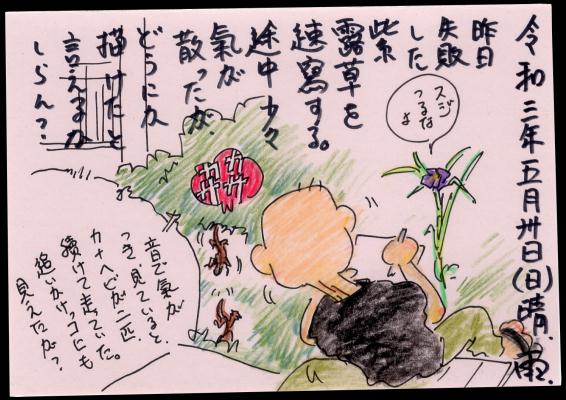 令和三年五月卅日(日)晴、雨.
昨日
失敗
した
紫
露草を
速寫する。
途中少々
氣が
散ったが、
どうにか
描けたと
言えるか
しらん?
スジ
つるな
よ
カサ
カサ
音で氣が
つき、見ていると、
カナヘビが二匹
續けて走ていた。
追いかけっコにも
見えたが?